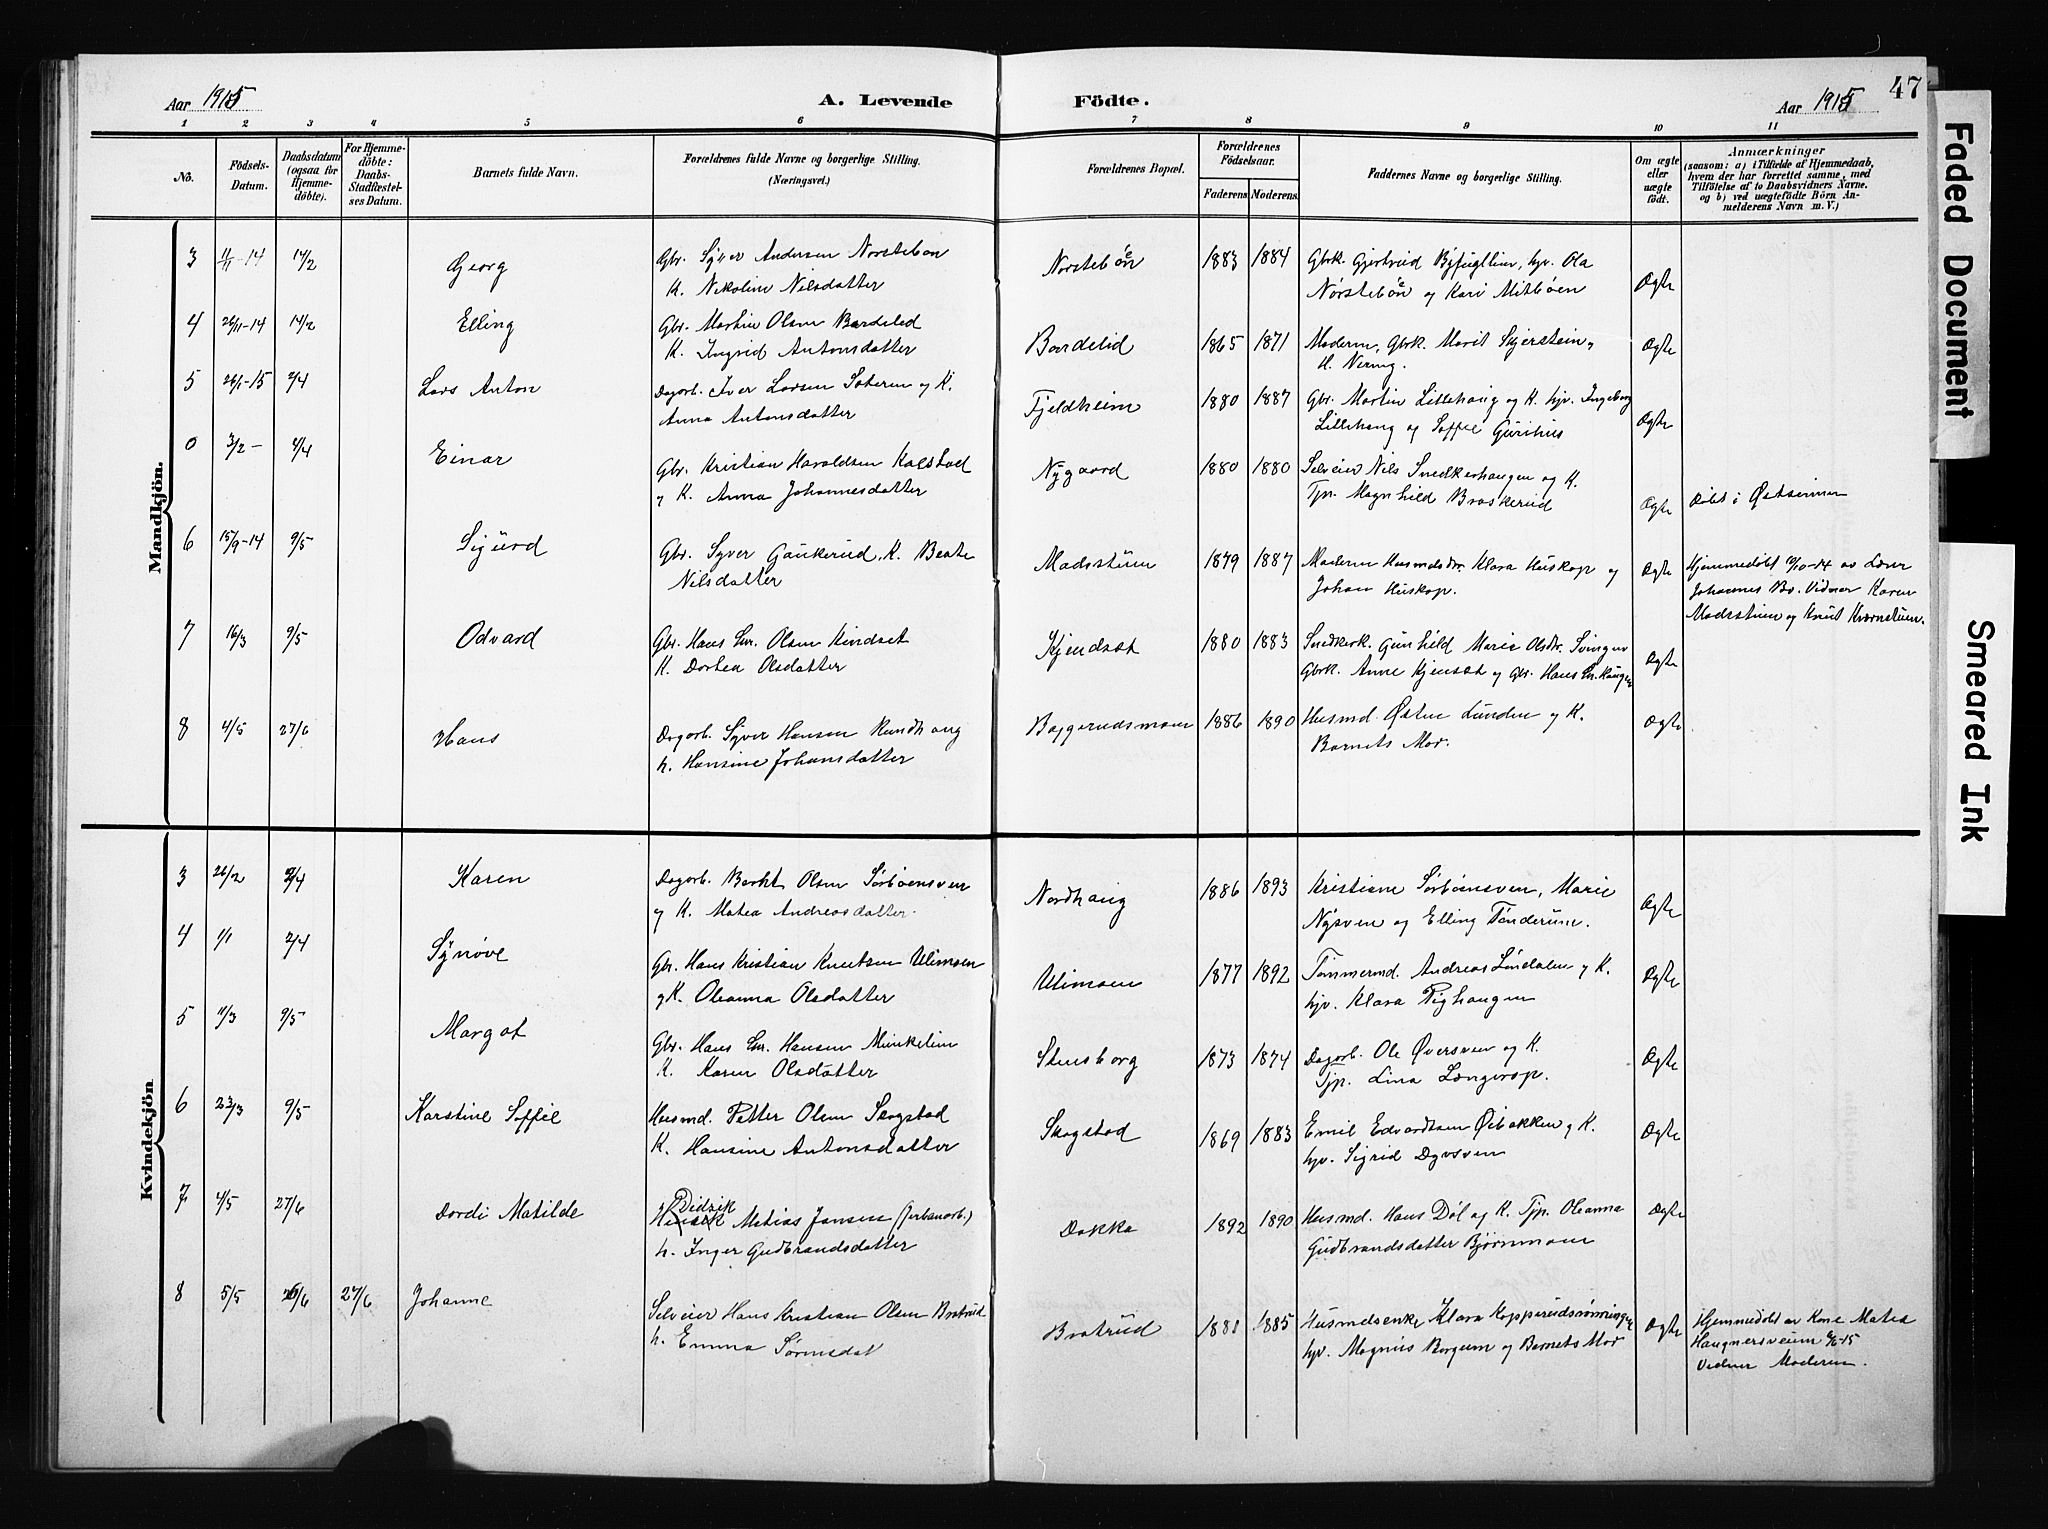 47
Aar 1915
A. Levende Födte.
Aar 1915
1 2 3 4 5 6 7 8 9 10 11
No.
Födsels-Datum.
Daabsdatum (ogsaa for Hjemme-döbte).
For Hjemme-döbte: Daabs-Stadfæstel-ses Datum.
Barnets fulde Navn.
Forældrenes fulde Navne og borgerlige Stilling.
(Næringsvei.)
Forældrenes Bopæl.
Forældrenes Födselsaar.
Faderens Moderens
Faddernes Navne og borgerlige Stilling.
Om ægte eller uægte födt.
Anmærkninger
(saasom: a) i Tilfælde af Hjemmedaab,
hvem der har forrettet samme, med
Tilföielse af to Daabsvidners Navne.
og b) ved uægtefödte Börn An-
melderens Navn m. V.)
Mandkjön.
3 11/11-14 14/2 Georg Gbr. Syver Andersen Norstebøn Norstebøen 1883 1884 Gbrk. Gjertrud Byfuglien, hv. Ola Ægte
K. Nikoline Nilsdatter Nørstebøen og Kari Mitbøen
4 26/11-14 14/2 Elling Gbr. Martin Olsen Bardelid Bardelid 1865 1871 Moderen, Gbrk. Marit Skjerstein, Ægte
K. Ingrid Antonsdatter
5 26/1-15 2/4 Lars Anton Dagarb. Iver Larsen Sæteren og K. Fjeldheim 1880 1887 Gbr. Martin Lillehaug og K. hjv. Ingeborg Ægte
Anna Antonsdatter Lillehaug og Soffie Gurihus
0 3/2- 4/4 Einar Gbr. Kristian Haraldsen Kalstad Nygaard 1880 1880 Selveier Nils Snedkerhaugen og K. Ægte
og K. Anna Johannesdatter Tjp. Magnhild Braskerud Døbt i Østsinnen
6 15/9-14 9/5 Sigurd Gbr. Syver Gaukerud, K. Beate Madsstuen 1879 1887 Moderen Husmdsdtr. Klara Huskop og Ægte Hjemmedøbt
Nilsdatter Johan Huskop. Johannes Bø. Vidner Karen
Madsstuen og Knut Kvernstuen.
7 16/3 9/5 Odvard Gbr. Hans Chr. Olsen Kindset Kjendset 1880 1883 Snedkerk. Gunhild Marie Olsdtr. Svingen Ægte
K. Dortea Olsdatter Gbrk. Anne Kjensæt og Gbr. Hans Chr. Haugen
8 4/5 27/6 Hans Dagarb. Syver Hansen Rundhaug Baggerudsmoen 1886 1890 Husmd. Østen Lunden og K. Ægte
h. Hansine Johansdatter Barnets Mor.
Kvindekjön.
3 26/2 2/4 Karen Dagarb. Berht Olsen Sørbøensven Nordhaug 1886 1893 Kristiane Sørbøensven, Marie Ægte
og K. Matea Andreasdatter. Nysven og Elling Tønderum.
4 1/1 2/4 Synøve Gbr. Hans Kristian Knutsen Ulimoen Ulimoen 1877 1892 Tømmermd. Andreas Lindalen og K. Ægte
og K. Oleanna Olsdatter hjv. Klara Righaugen
5 11/3 9/5 Margot Gbr. Hans Chr. Hansen Minkelien Stensborg 1873 1874 Dagarb. Ole Øversveen og K. Ægte
K. Karen Olsdatter Tjp. Lina Langerop.
6 23/3 9/5 Karstine Soffie Husmd. Petter Olsen Skogstad Skogstad 1869 1883 Emil Edvardsen Øibakken og K. Ægte
K. Hansine Antonsdatter hjv. Sigrid Dyvsven
7 4/5 27/6 Dordi Matilde Didrik Matias Jansen (Jernbanarb.) Dokka 1892 1890 Husmd. Hans Døl og K. Tjp. Oleanna Ægte
h. Inger Gudbrandsdatter Gudbrandsdatter Bjørnmoen
8 5/5 26/6 27/6 Johanne Selveier Hans Kristian Olsen Bratrud Bratrud 1881 1885 Husmdsenke Klara Kopperudsrønningen Ægte Hjemmedøbt av Kone Matea
h. Emma Sørensdat hjv. Magnus Borgum og Barnets Mor
Vidner Moderen.
Faded Document
Smeared Ink